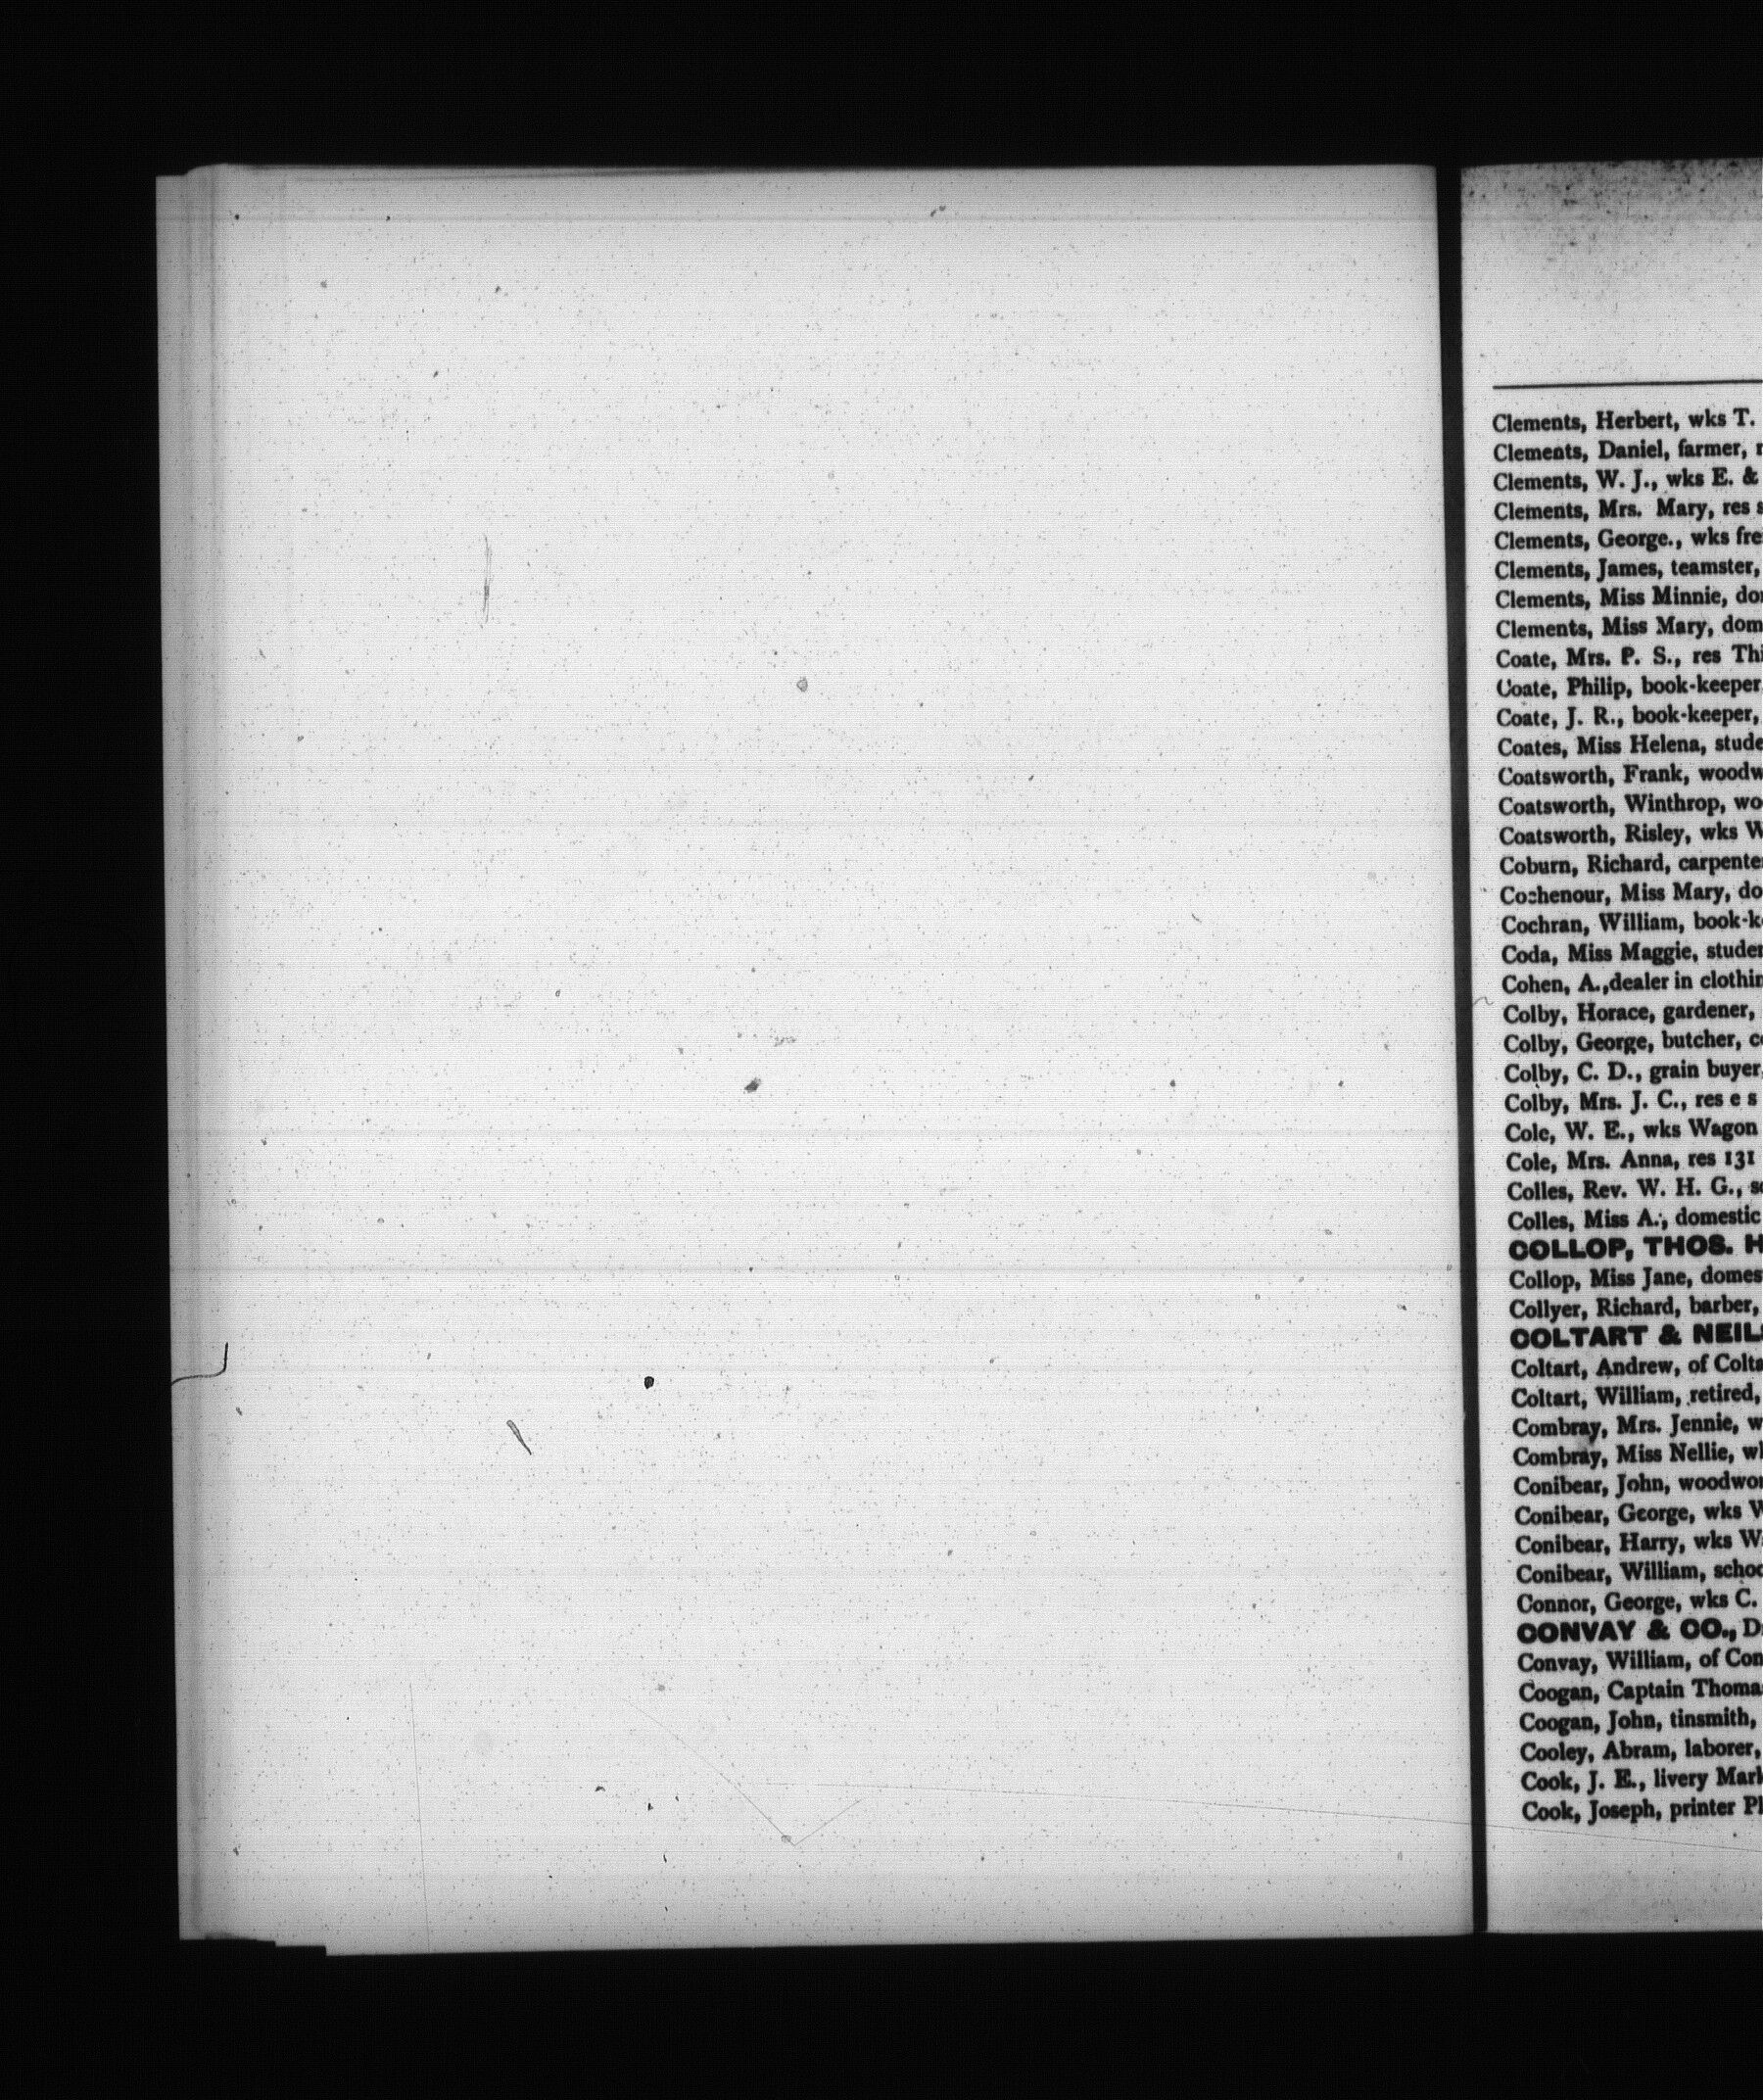 Clements, Herbert, wks T.
Clements, Daniel, farmer,
Clements, W. J., wks E. &
Clements, Mrs. Mary, res s
Clements, George., wks fre
Clements, James, teamster,
Clements, Miss Minnie, do
Clements, Miss Mary, dom
Coate, Mrs. P. S., res Thi
Coate, Philip, book-keeper,
Coate, J. R., book-keeper,
Coates, Miss Helena, stude
Coatsworth, Frank, woodw
Coatsworth, Winthrop, wo
Coatsworth, Risley, wks W
Coburn, Richard, carpente
Cochenour, Miss Mary, do
Cochran, William, book-k
Coda, Miss Maggie, studen
Cohen, A.,dealer in clothin
Colby, Horace, gardener,
Colby, George, butcher, c
Colby, C. D., grain buyer,
Colby, Mrs. J. C., res e s
Cole, W. E., wks Wagon
Cole, Mrs. Anna, res 131
Colles, Rev. W. H. G., s
Colles, Miss A., domestic
COLLOP, THOS. H
Collop, Miss Jane, domes
Collyer, Richard, barber,
COLTART & NEIL
Coltart, Andrew, of Colta
Coltart, William, retired,
Combray, Mrs. Jennie, w
Combray, Miss Nellie, w
Conibear, John, woodwo
Conibear, George, wks W
Conibear, Harry, wks W
Conibear, William, schoo
Connor, George, wks C.
CONVAY & CO., D
Convay, William, of Con
Coogan, Captain Thoma
Coogan, John, tinsmith,
Cooley, Abram, laborer,
Cook, J. E., livery Mark
Cook, Joseph, printer Pl